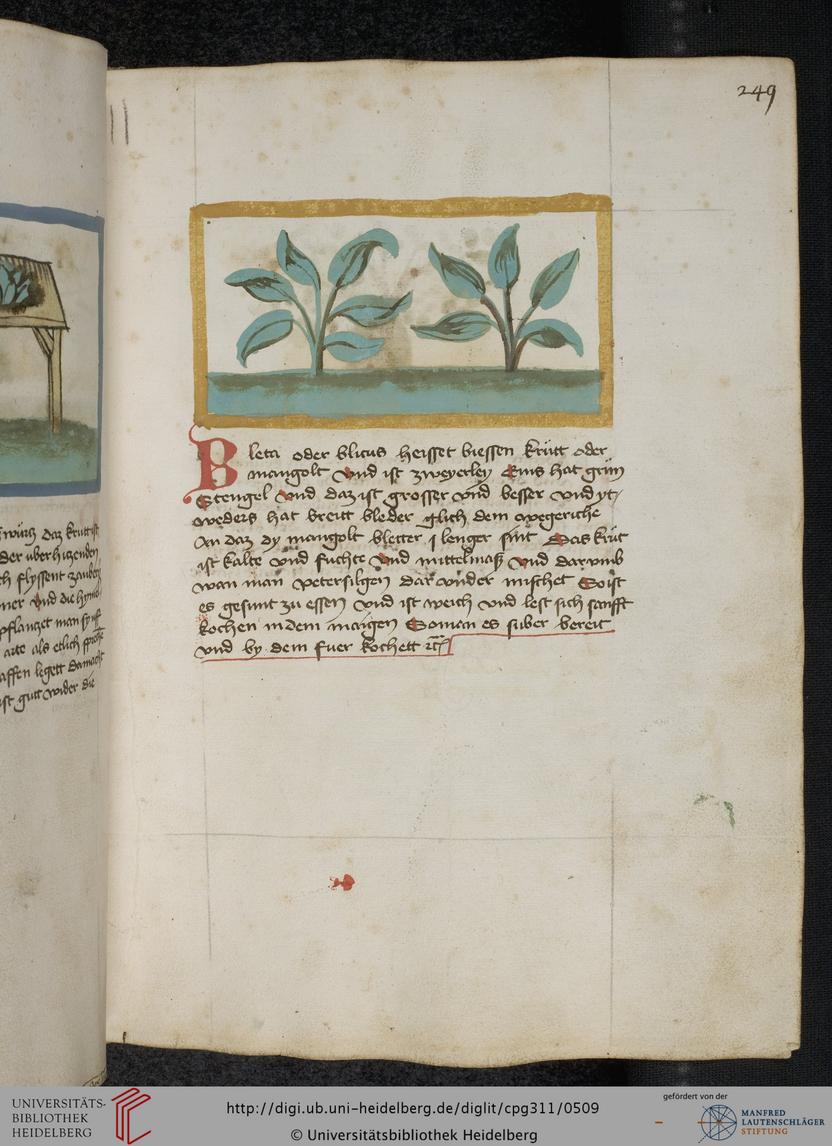 249
Bleta oder blitus heisset biessen krütt oder
mangolt vnd ist zweyerley Eins hat grün
Stengel vnd daz ist grosser vnd besser vnd yt,
weders hat breitt bleder glich dem wegeriche
An daz dy mangolt bletter j lenger sint Das krüt
ist kalte vnd fuchte vnd mittelmaß vnd dar vmb
wan man petersilgen dar vnder mischet So ist
es gesunt zu essen vnd ist weich vnd lest sich sanfft
kochen in dem maigen So man es suber bereit
vnd by dem fuer kochett
würtz daz krutt ist
der über hitzenden
ch flyssent zauber
mer vnd die
pflantzet man
arte als etlich
affen legett
ist gutt wider die
UNIVERSITÄTS-
BIBLIOTHEK
HEIDELBERG
http://digi.ub.uni-heidelberg.de/diglit/cpg311/0509
© Universitätsbibliothek Heidelberg
gefördert von der
MANFRED
LAUTENSCHLÄGER
STIFTUNG